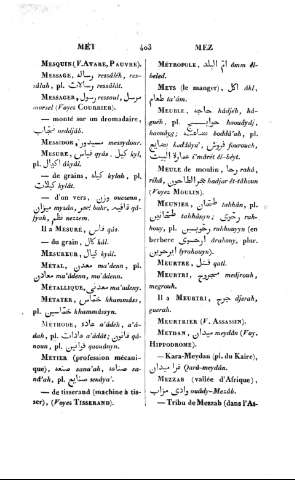 MÉT 403 MEZ
MESQUIN (V. AVARE, PAUVRE).
MESSAGE, رسالة ressâléh, res-
sâlah, pl. رسالات ressâlat.
MESSAGER, رسول ressoul, مرسل
morsel (Voyez COURRIER).
— monté sur un dromadaire,
نجاب
MESSIDOR, مسيدور messydour.
MESURE, قياس qyâs, كيل kyl,
pl. اكيال akyâl.
— de grains, كيله kylah, pl.
كيلات kylât.
— d'un vers, وزن ouezenn,
ميزان myzân, بحر bahr, قافيه qâ-
fyah, نظم nezem.
Il a MESURÉ, قاس qâs.
— du grain, كال kâl.
MESUREUR, كيال kyâl.
MÉTAL, معدن ma'denn, pl.
معادن ma'âdenn, ma'âdenn.
MÉTALLIQUE, معدني ma'adeny.
MÉTAYER, خماس khammâs,
pl. خماسين khammâsyn.
MÉTHODE, عاده a'âdéh, a'â-
dah, pl. عادات a'âdât; قانون qâ-
noun, pl. قوانين qaouânyn.
MÉTIER (profession mécani-
que), صنعه sana'ah, صناعه sa-
nâ'ah, pl. صنايع senâya'.
— de tisserand (machine à tis-
ser), (Voyez TISSERAND).
MÉTROPOLE, ام البلد
beled.
METS (le manger), اكل âkl,
طعام ta'âm.
MEUBLE, حاجه hâdjéh, hâ-
guéh, pl.
boddâ'ah, pl.
بضايع baddâya', فروش fourouch,
عمارة البيت e'mârét êl-béyt.
MEULE de moulin, رحا rahâ,
رحى rihä, حجر الطاحون hadjar êt-tâhoun
(Voyez MOULIN).
MEUNIER, طحان tahhân, pl.
طحانين tahhânyn, رحوي rah-
houy, pl. رحويين rahhouyyn (en
berbere ارحوي arahouy, plur.
ايرحوين
MEURTRE, قتل qatléh.
MEURTRI, مجروح medjrouh,
megrouh.
Il a MEURTRI, جرح djarah,
garah.
MEURTRIER (V. ASSASSIN).
MEYDAN, ميدان meydân (Voy.
HIPPODROME).
— Kara-Meydan (pl. du Kaire),
قرا ميدان Qarâ-meydân.
MEZZAB (vallée d'Afrique),
وادي مزاب ouâdy-Mezâb.
— Tribu de Mezzab (dans l'As-